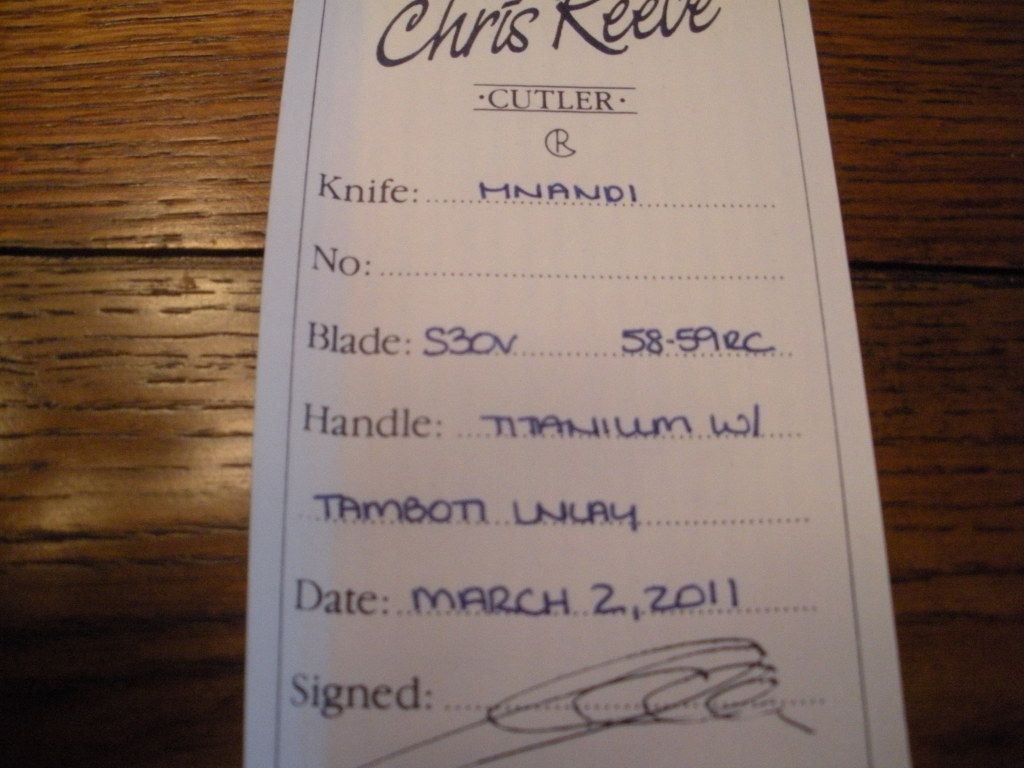 Chris Reeve
·CUTLER·
R
Knife: MNANDI
No:
Blade: S30V 58-59RC
Handle: TITANIUM W/
TAMBOTI INLAY
Date: MARCH 2, 2011
Signed: